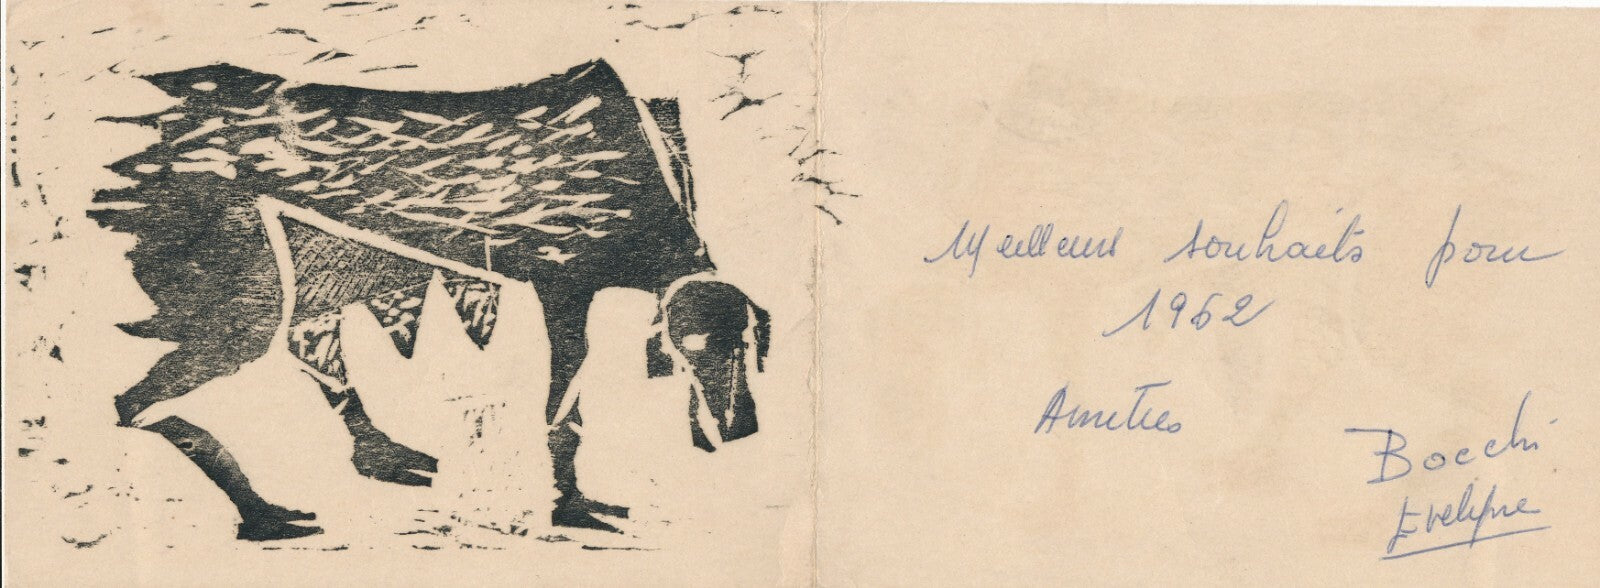 Meilleurs souhaits pour
1962
Amitiés
Bocchi
Evelyne